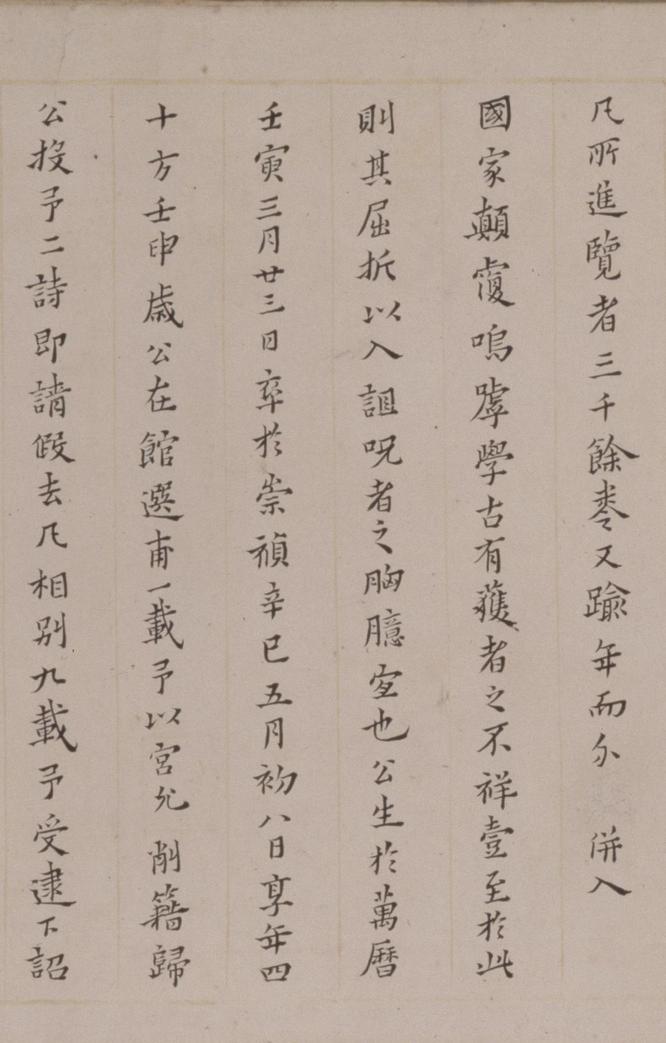 凡所進覽者三千餘夲又踰年而尒　併入
國家顛覆嗚嘑學古有蒦者之不祥壹至於此
則其屈抑以入詛呪者之胸臆宐也公生於萬曆
壬寅三月廿三日卒於崇禎辛巳五月初八日享年四
十方壬申歲公在館選甫一載予以宮允削籍歸
公投予二詩即請假去凡相別九載予受逮下詔